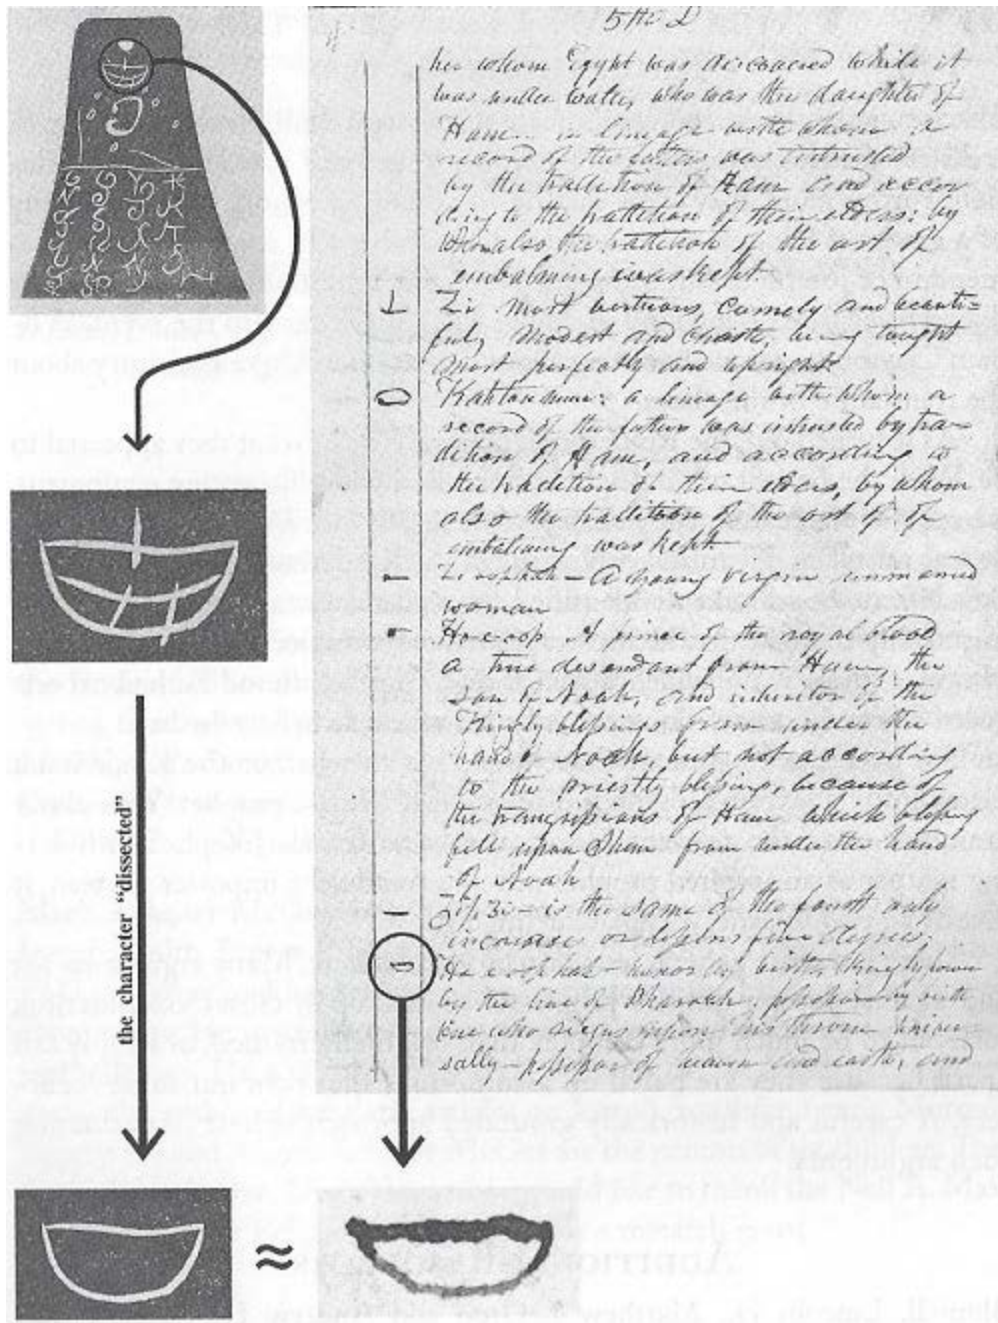 5th D
her whom Egypt was discovered while it
was under water, who was the daughter of
Ham. — a lineage with whom a
record of the fathers was intrusted
by the tradition of Ham and accor
ding to the tradition of their elders: by
whom also the tradition of the art of
embalming was kept.
Zi most virtuous, comely and beauti=
ful, modest and chaste, being taught
most perfectly and upright
Kahtoumun: a lineage with whom a
record of the fathers was intrusted by tra
dition of Ham, and according to
the tradition of their elders, by whom
also the tradition of the art of
embalming was kept
Zi oop hah — A young virgin unmarried
woman
Ho e oop. A prince of the royal blood
a true descendant from Ham, the
Son of Noah, and inheritor of the
Kingly blessings from under the
hand of Noah, but not according
to the priestly blessing, because of
the transgressions of Ham which blessing
fell upon Shem from under the hand
of Noah
Zip Zi is the same of the fourth only
increase or lessens five degrees,
by the line of Pharaoh
one who reigns upon his throne univer
sally — possessor of heaven and earth, and
the character “dissected”
≈